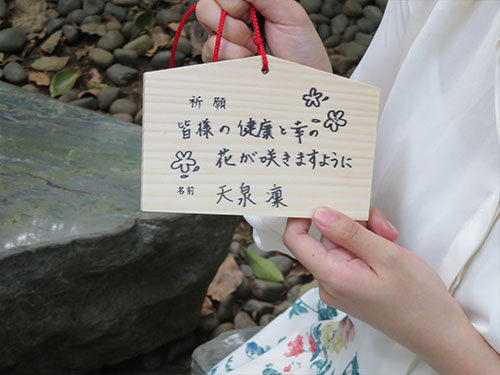 祈願
皆様の健康と幸の
花が咲きますように
名前 天泉凜